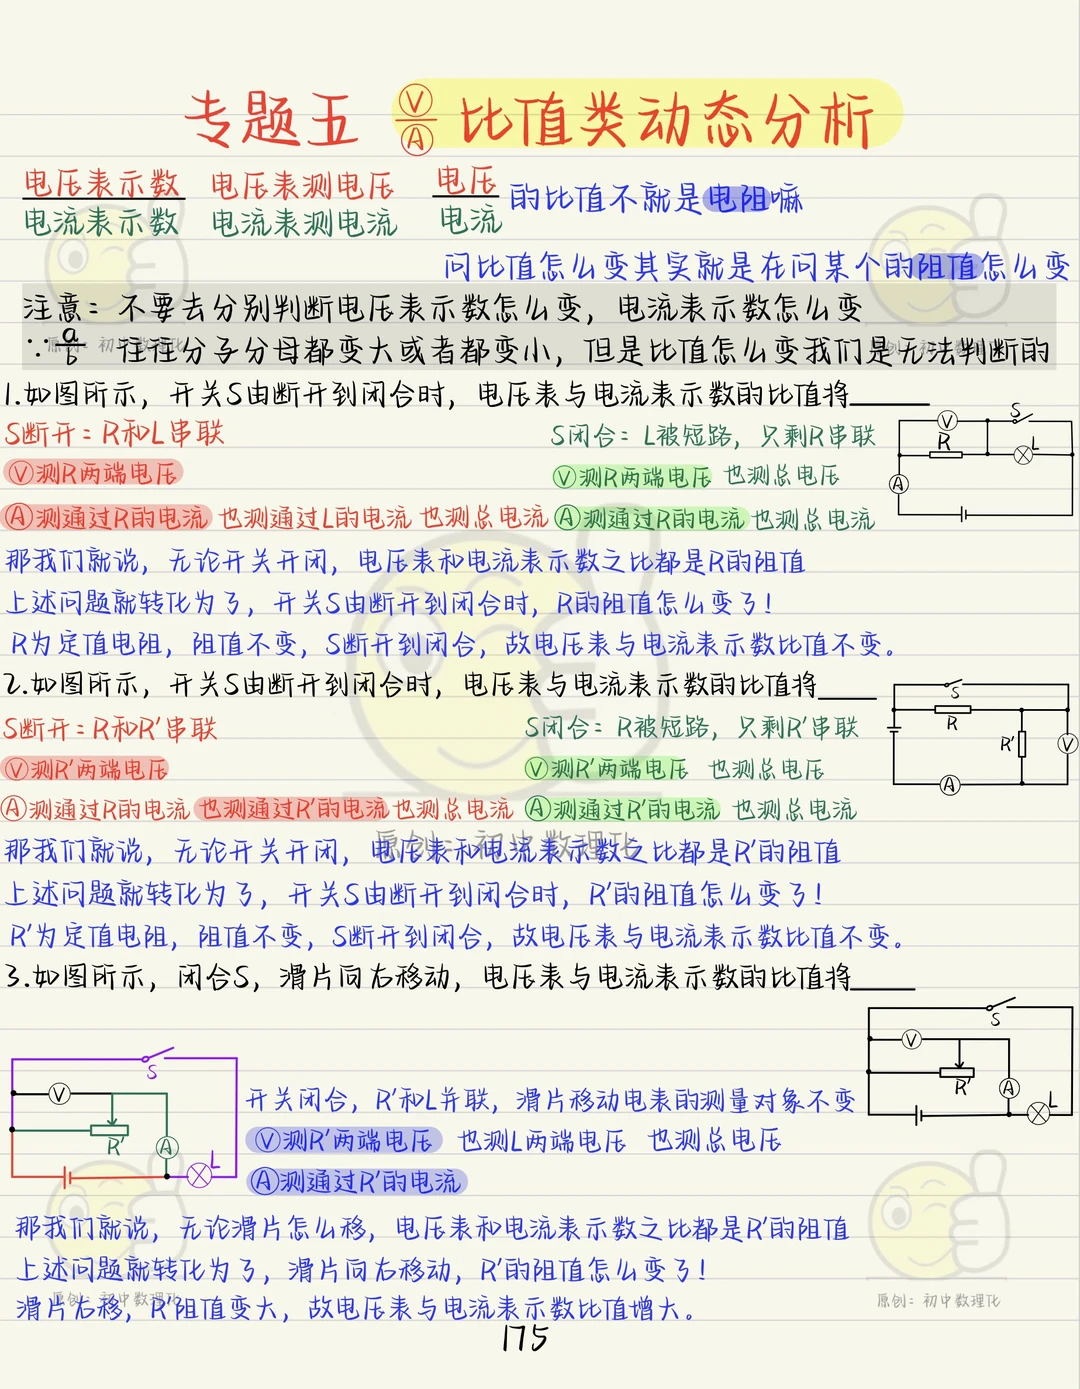 专题五 Ⓥ/Ⓐ 比值类动态分析
电压表示数/电流表示数 电压表测电压 电流表测电流 电压/电流 的比值不就是电阻嘛
问比值怎么变其实就是在问某个的阻值怎么变
注意：不要去分别判断电压表示数怎么变，电流表示数怎么变
∵a/b 往往分子分母都变大或者都变小，但是比值怎么变我们是无法判断的
1.如图所示，开关S由断开到闭合时，电压表与电流表示数的比值将____
S断开：R和L串联
Ⓥ测R两端电压
Ⓐ测通过R的电流 也测通过L的电流 也测总电流
S闭合：L被短路，只剩R串联
Ⓥ测R两端电压 也测总电压
Ⓐ测通过R的电流 也测总电流
V
S
R
L
A
那我们就说，无论开关开闭，电压表和电流表示数之比都是R的阻值
上述问题就转化为了，开关S由断开到闭合时，R的阻值怎么变了！
R为定值电阻，阻值不变，S断开到闭合，故电压表与电流表示数比值不变。
2.如图所示，开关S由断开到闭合时，电压表与电流表示数的比值将____
S断开：R和R′串联
Ⓥ测R′两端电压
Ⓐ测通过R的电流 也测通过R′的电流 也测总电流
S闭合：R被短路，只剩R′串联
Ⓥ测R′两端电压 也测总电压
Ⓐ测通过R′的电流 也测总电流
S
R
R′
V
A
那我们就说，无论开关开闭，电压表和电流表示数之比都是R′的阻值
上述问题就转化为了，开关S由断开到闭合时，R′的阻值怎么变了！
R′为定值电阻，阻值不变，S断开到闭合，故电压表与电流表示数比值不变。
3.如图所示，闭合S，滑片向右移动，电压表与电流表示数的比值将____
S
V
R′
A
L
S
V
R′
A
L
开关闭合，R′和L并联，滑片移动电表的测量对象不变
Ⓥ测R′两端电压 也测L两端电压 也测总电压
Ⓐ测通过R′的电流
那我们就说，无论滑片怎么移，电压表和电流表示数之比都是R′的阻值
上述问题就转化为了，滑片向右移动，R′的阻值怎么变了！
滑片右移，R′阻值变大，故电压表与电流表示数比值增大。
175
原创：初中数理化
原创：初中数理化
原创：初中数理化
原创：初中数理化
原创：初中数理化